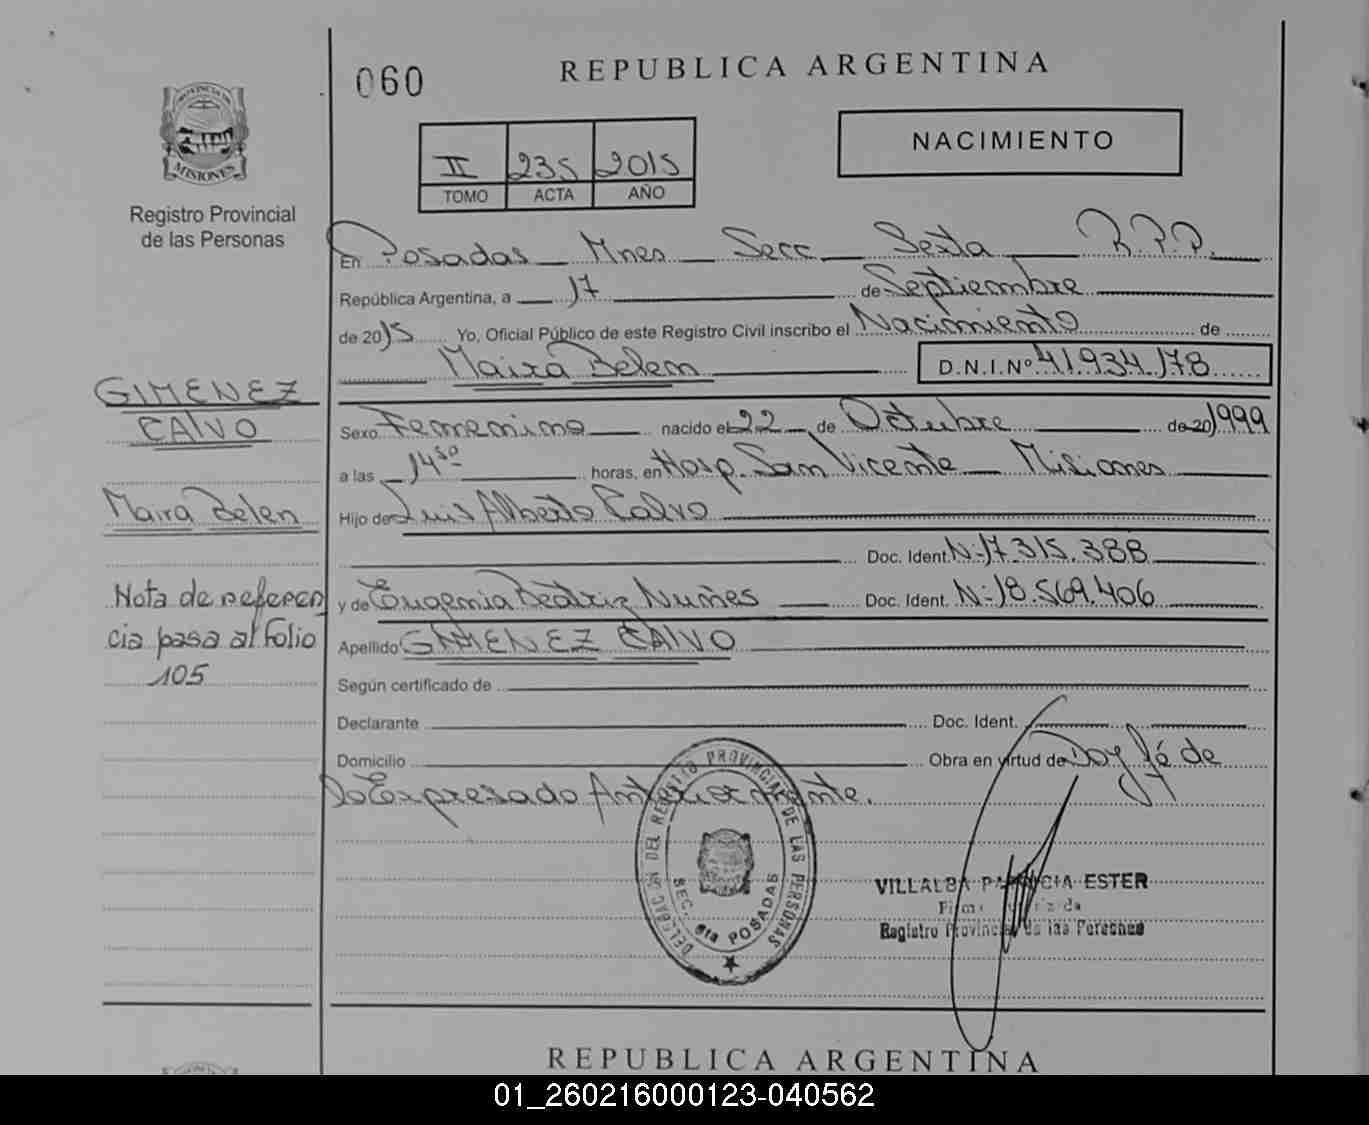 060
REPUBLICA ARGENTINA
PROVINCIA DE
MISIONES
Registro Provincial
de las Personas
II 235 2015
TOMO ACTA AÑO
NACIMIENTO
En Posadas Mnes Secc Sexta R.P.P.
República Argentina, a 17 de Septiembre
de 2015 Yo, Oficial Público de este Registro Civil inscribo el Nacimiento de
Maira Belem D.N.I.Nº 41.934.178
GIMENEZ
CALVO
Maira Belen
Nota de referen
cia pasa al Folio
105
Sexo Femenino nacido el 22 de Octubre de 20 1999
a las 14 50 horas, en Hosp. San Vicente Misiones
Hijo de Luis Alberto Calvo
Doc. Ident. Nº 17.315.388
y de Eugenia Beatriz Nuñes Doc. Ident. Nº 18.569.406
Apellido GIMENEZ CALVO
Según certificado de
Declarante Doc. Ident.
Domicilio Obra en virtud de Doy fé de
lo Expresado Anteriormente.
DEL REGISTRO PROVINCIAL DE LAS PERSONAS
SEC. 6ta POSADAS
VILLALBA PATRICIA ESTER
Registro Provincial de las Personas
REPUBLICA ARGENTINA
01_260216000123-040562